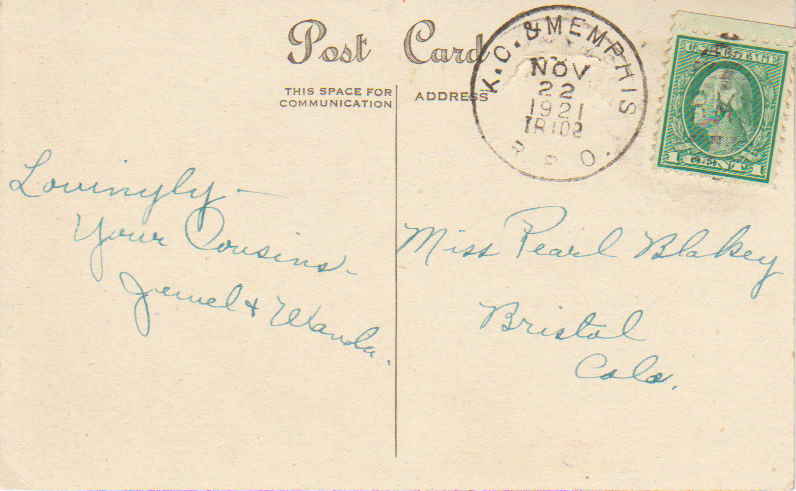 Post Card
THIS SPACE FOR
COMMUNICATION
ADDRESS
K.C. & MEMPHIS
NOV
22
1921
TR102
R. P. O.
1 CENTS 1
Lovinyly—
Your Cousins—
Jewel & Wanda.
Miss Pearl Blakey
Bristol
Colo.